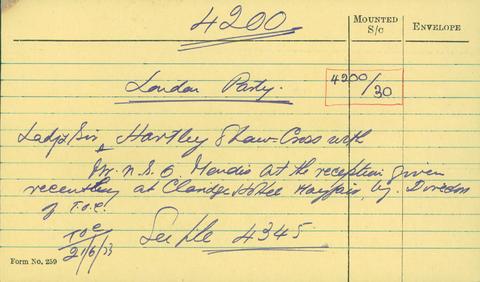 4200
MOUNTED S/C
ENVELOPE
London Party.
4200/30
Lady & Sir Hartley Shaw-Cross with
Mr. N.S.O. Mendis at the reception given
recently at Claridge Hotel Mayfair, by. Directors
of T.O.C.
TOC
21/6/53
See file 4345
Form No. 259